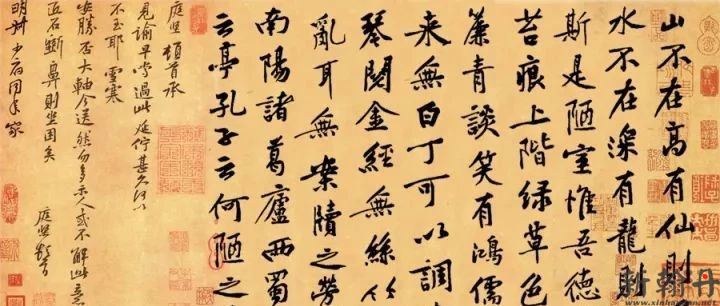 山不在高有仙則
水不在深有龍
斯是陋室惟吾德
苔痕上階緑草色
簾青談笑有鴻儒
来無白丁可以調
琴閱金經無絲竹
亂耳無案牘之勞
南陽諸葛廬西蜀
云亭孔子云何陋之
庭堅頓首承
見諭早當過此延佇甚久何以
不至耶雲寒
安勝否大軸今送然勿多示人或不解此意
匠石斲鼻則坐困矣
庭堅頓首
明叔少府同年家